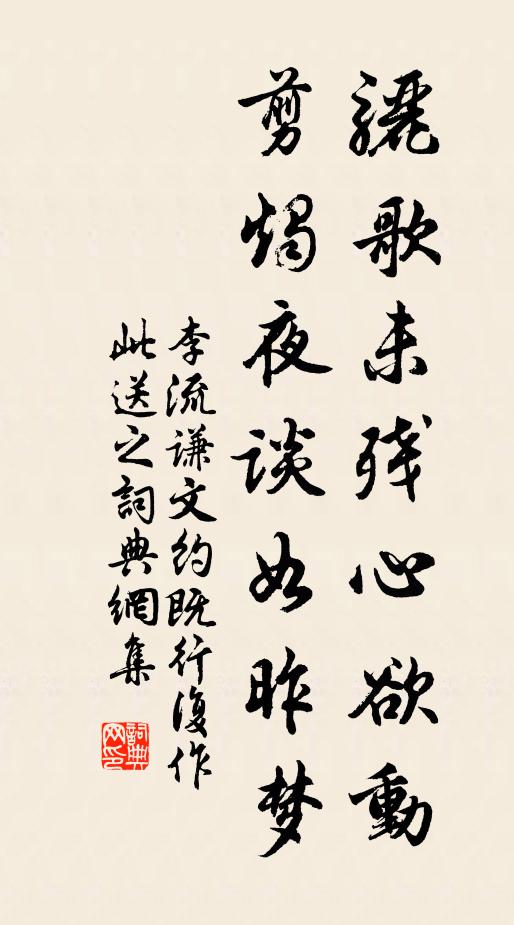 骊歌未残心欲動
剪燭夜談如昨梦
李流谦文約既行復作
此送之詞典網集
詞典网印